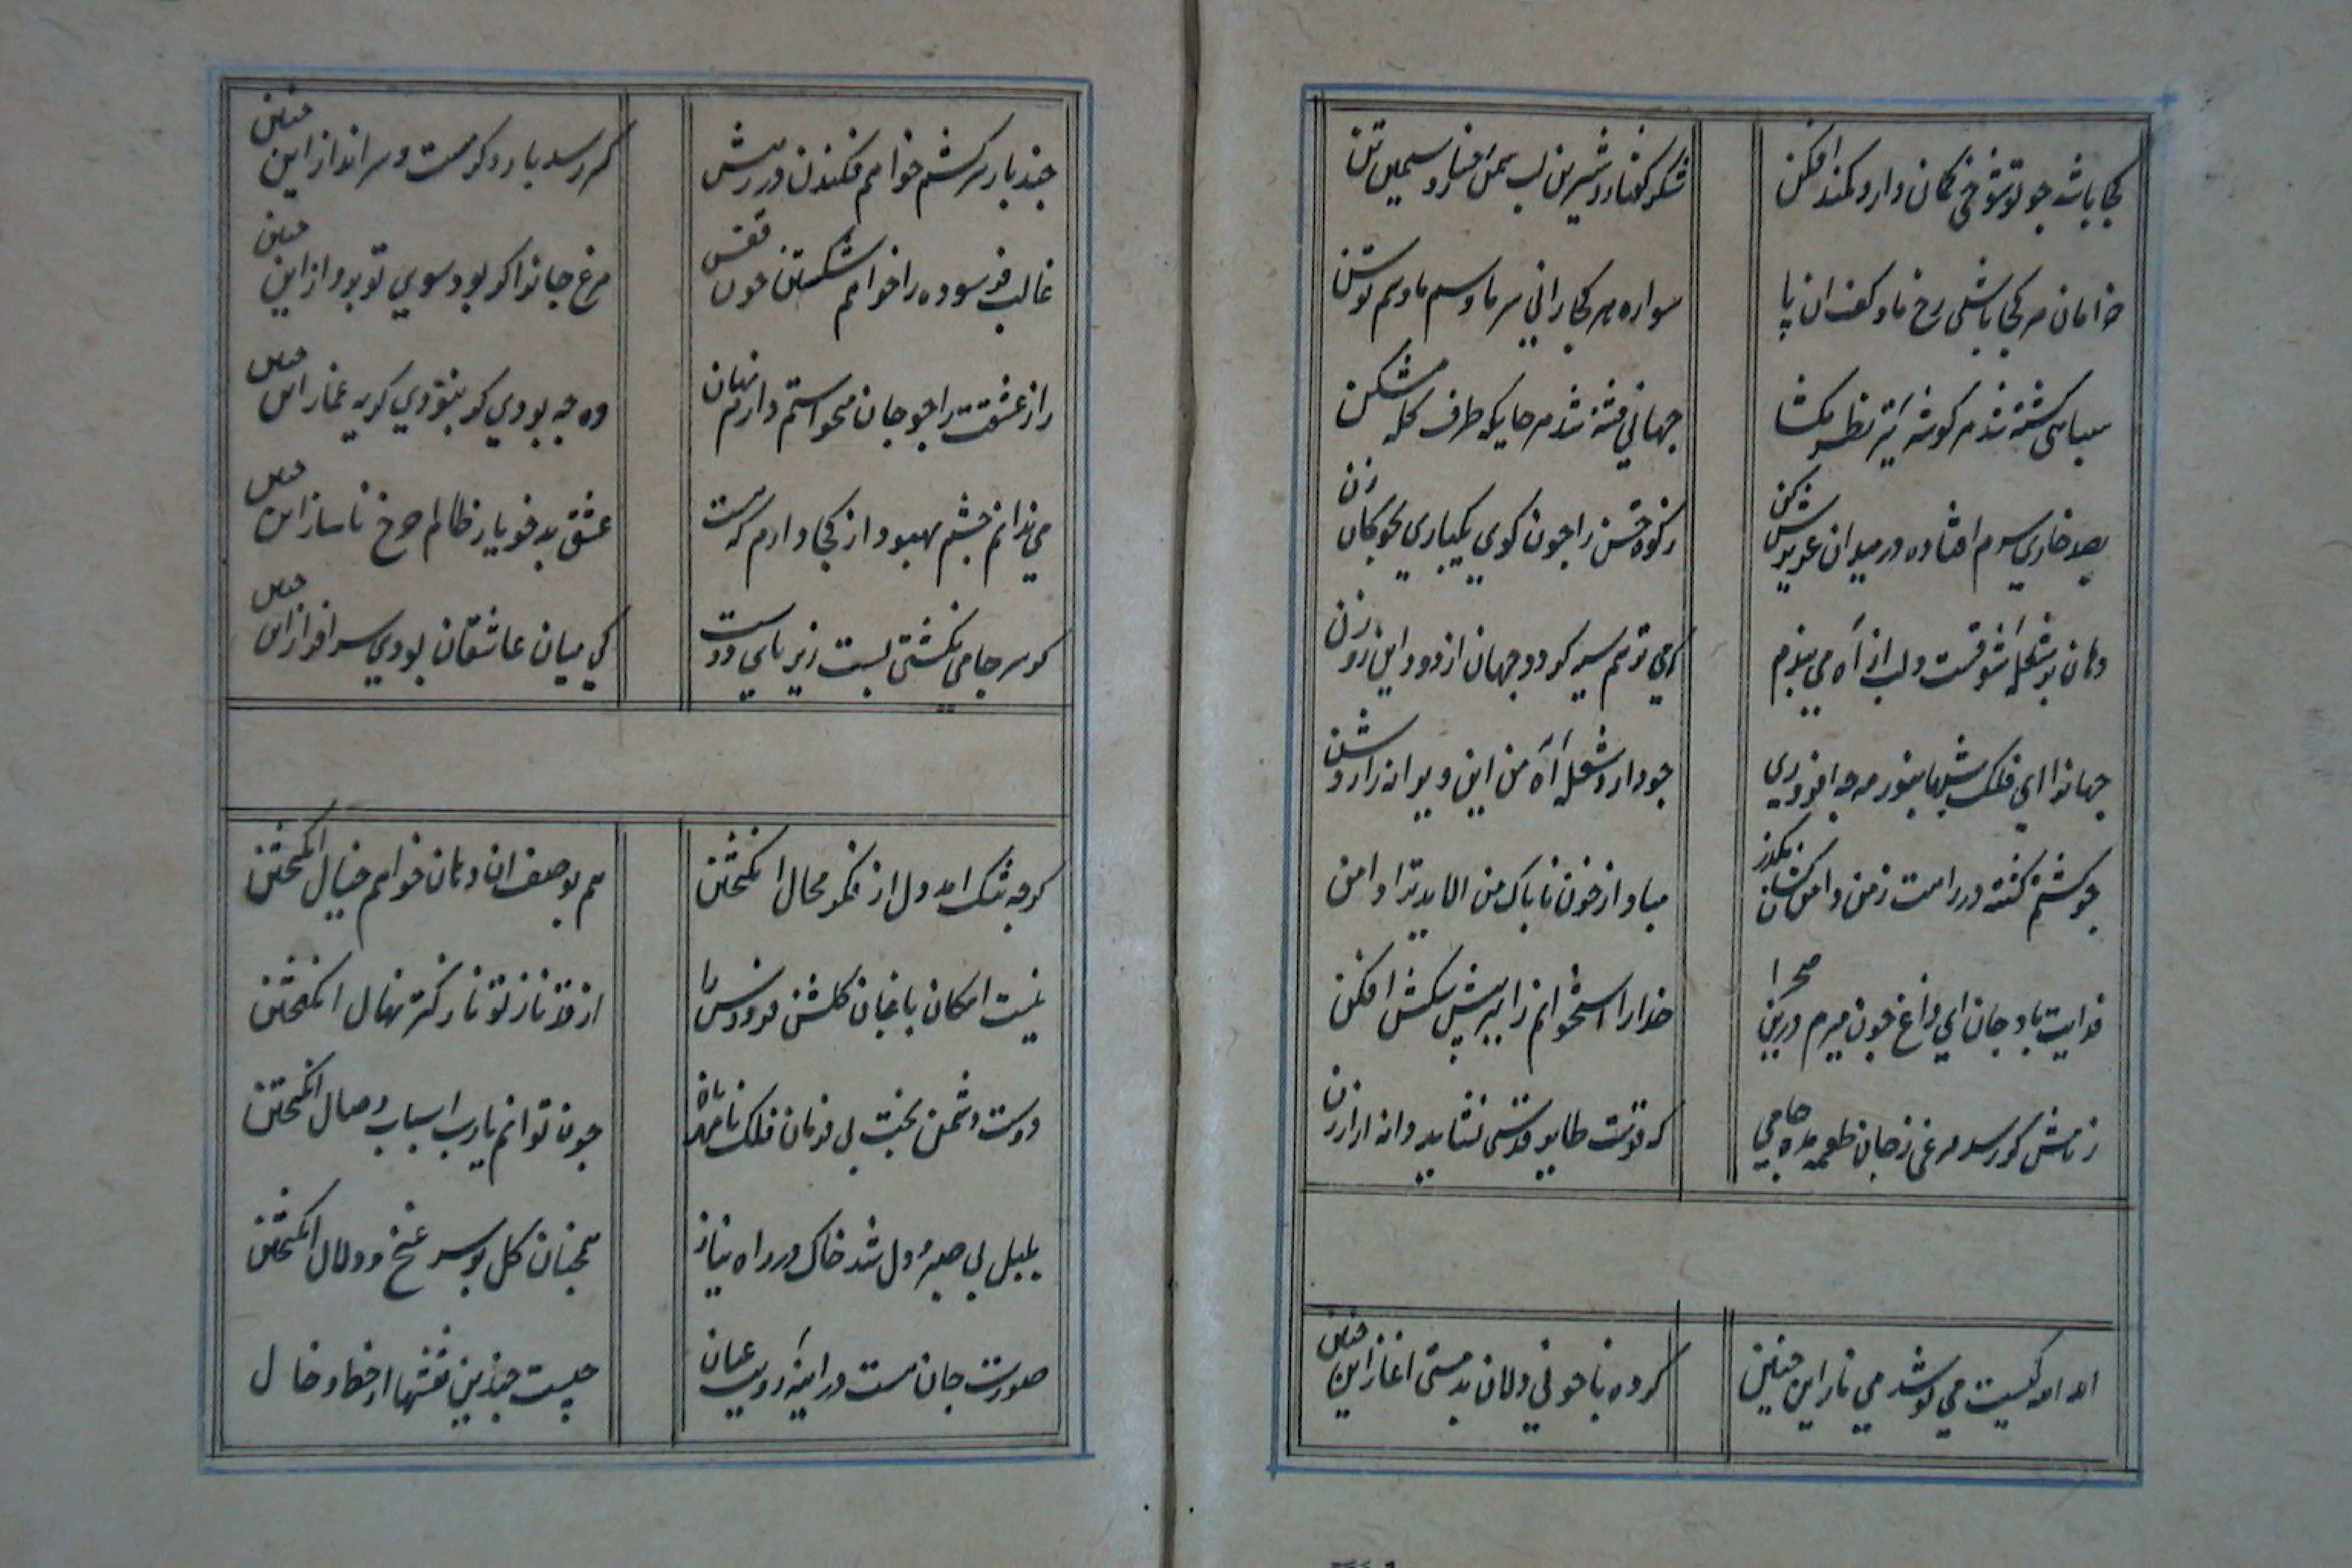 کجا باشد جو تو شوخی کمان دار و کمند افکن شکر کفتار و شیرین لب سمن رخسار و سیمین تن
خرامان هر کجا باشی رخ ما و کف ان پا سواره هر کجا رانی سر ما و سم توسن
سباهی کشته شد هر کوشه تیر نظر بکشا جهانی فتنه شد هر جا یکه طرف کله بشکن
بصد خاری سرم افتاده در میدان عزیزش کن زکوة حسن را جون کوی یکباری بجوکان زن
دهان بر شعله شوقست و لب از آه می بندم که می ترسم سیه کردد جهان از دود این روزن
جهانرا ای فلک شبها بنور مه جه افروزی جو دارد شعله آه من این ویرانه را روشن
جو کشتم کشته در راهت ز من دامن کشان بکذر مباد از خون ناباک من الاید ترا دامن
فدایت باد جان ای زاغ جون میرم درین صحرا خدا را استخوانم را ببر پیش سکش افکن
ز نامش کر رسد مرغی ز جان طعمه بده جامی که قوت طایر قدسی نشاید دانه ارزن
الله الله کیست می نوشد می ناز این جنین کرده با خونی دلان بد مستی اغاز این جنین
جند بار سرکشم خواهم فکندن در رهش کر رسد بار دکر مست و سر انداز این جنین
غالب فرسوده را خواهم شکستن جون قفس مرغ جانرا کر بود سوی تو برواز این جنین
راز عشقت را جو جان میخواستم دارم نهان وه جه بودی کر نبودی کریه غماز این جنین
می ندانم جشم بهبود از کجا دارم که هست عشق بد خو یار ظالم جرخ ناساز این جنین
کر سر جامی نکشتی بست زیر بای دوست کی میان عاشقان بودی سرافراز این جنین
کرجه تنک امد دل از فکر محال انکیختن هم بوصف ان دهان خواهم خیال انکیختن
نیست امکان باغبان کلشن فردوس را از قد ناز تو نازکتر نهال انکیختن
دوست دشمن بخت بی فرمان فلک نامهربان جون توانم یارب اسباب وصال انکیختن
بلبل بی صبر و دل شد خاک در راه نیاز همجنان کل بر سر غنج و دلال انکیختن
صورت جان هست در اینه رویت عیان جیست جندین نقشها از خط و خال